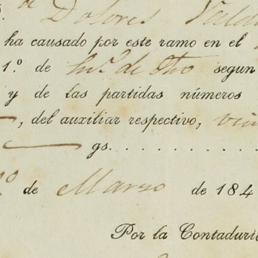 Dolores
ha causado por este ramo en el
1.º de segun
y de las partidas números
, del auxiliar respectivo,
gs.
de Marzo de 184
Por la Contadurí